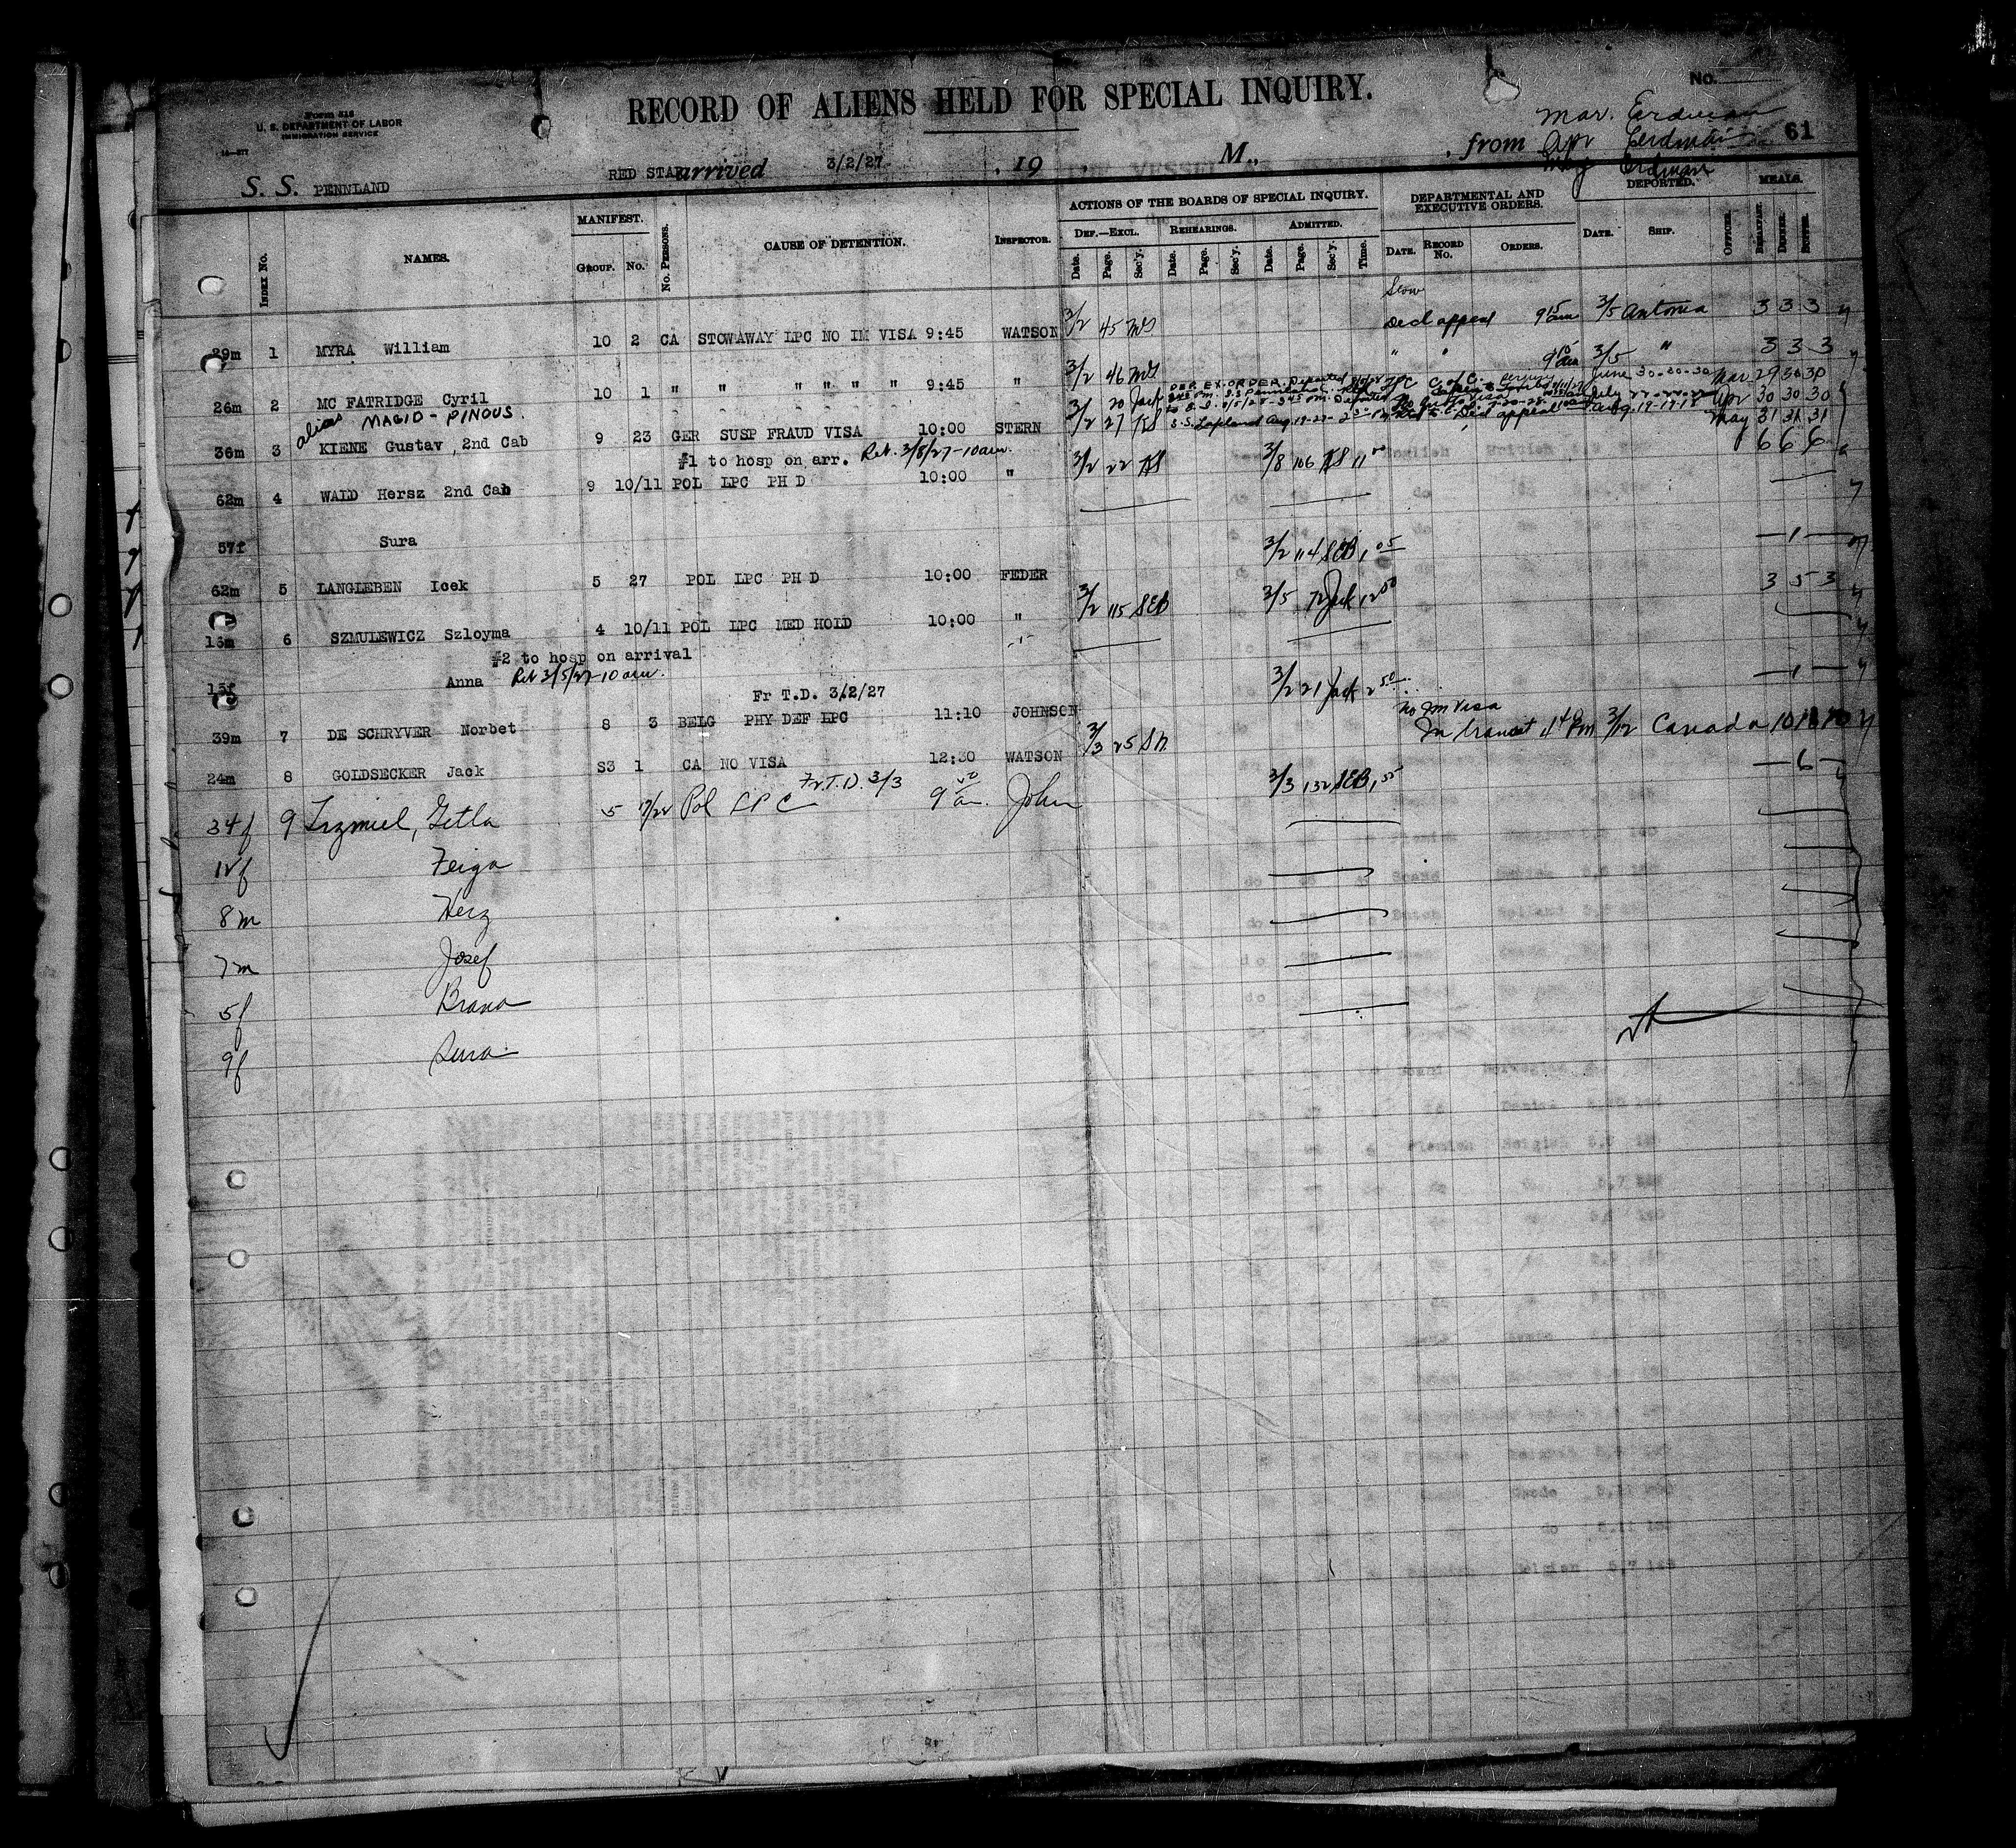 No.
Form 518
U. S. DEPARTMENT OF LABOR
IMMIGRATION SERVICE
RECORD OF ALIENS HELD FOR SPECIAL INQUIRY.
Mar. Erdman
Apr Erdman
May Erdman
61
S. S. PENNLAND RED STAR arrived 3/2/27 , 19 , M., , from
INDEX No. NAMES. MANIFEST. GROUP. No. No. PERSONS. CAUSE OF DETENTION. INSPECTOR. ACTIONS OF THE BOARDS OF SPECIAL INQUIRY. DEF.—EXCL. Date. Page. Sec'y. REHEARINGS. Date. Page. Sec'y. ADMITTED. Date. Page. Sec'y. Time. DEPARTMENTAL AND EXECUTIVE ORDERS. DATE. RECORD No. ORDERS. DEPORTED. DATE. SHIP. OFFICER. MEALS. BREAKFAST. DINNER. SUPPER.
Stow
29m 1 MYRA William 10 2 CA STOWAWAY LPC NO IM VISA 9:45 WATSON 3/2 45 Decl appeal 9 15 am 3/5 Antonia 3 3 3
26m 2 MC FATRIDGE Cyril 10 1 " " " " " " 9:45 " 3/2 46 " " 9 15 am 3/5 " 3 3 3
alias MAGID - PINOUS.
June 30-30-30 Mar 29 30 30
July Apr 30 30 30
Aug. 19-19-18 May 31 31 31
36m 3 KIENE Gustav, 2nd Cab 9 23 GER SUSP FRAUD VISA 10:00 STERN 3/2 20 Jack
3/2 21
S.S. Lapland Aug. 19-27- Decl appeal
#1 to hosp on arr. Ret. 3/8/27-10am.
62m 4 WALD Hersz 2nd Cab 9 10/11 POL LPC PH D 10:00 " 3/2 22 3/8 106 11 6 6 6
57f Sura
62m 5 LANGLEBEN Icek 5 27 POL LPC PH D 10:00 FEDER 3/2 114 SEB 1 05 — 1 —
16m 6 SZMULEWICZ Szloyma 4 10/11 POL LPC MED HOLD 10:00 " 3/2 115 SEB 3/5 72 Jack 12 50 3 5 3
#2 to hosp on arrival
15f Anna Ret 3/5/27-10am.
Fr T.D. 3/2/27
39m 7 DE SCHRYVER Norbet 8 3 BELG PHY DEF LPC 11:10 JOHNSON 3/2 21 Jack 2 50 — 1 —
No Im Visa
24m 8 GOLDSECKER Jack S3 1 CA NO VISA 12:30 WATSON 3/3 25 In transit 1 40 Pm 3/12 Canada 10 10 10
Fr T.D. 3/3
34f 9 Getla 5 Pol LPC 9 00 am. John 3/3 132 SEB 1 55 — 6 —
12f Feiga
8m Herz
7m Josef
5f Brana
9f Sura